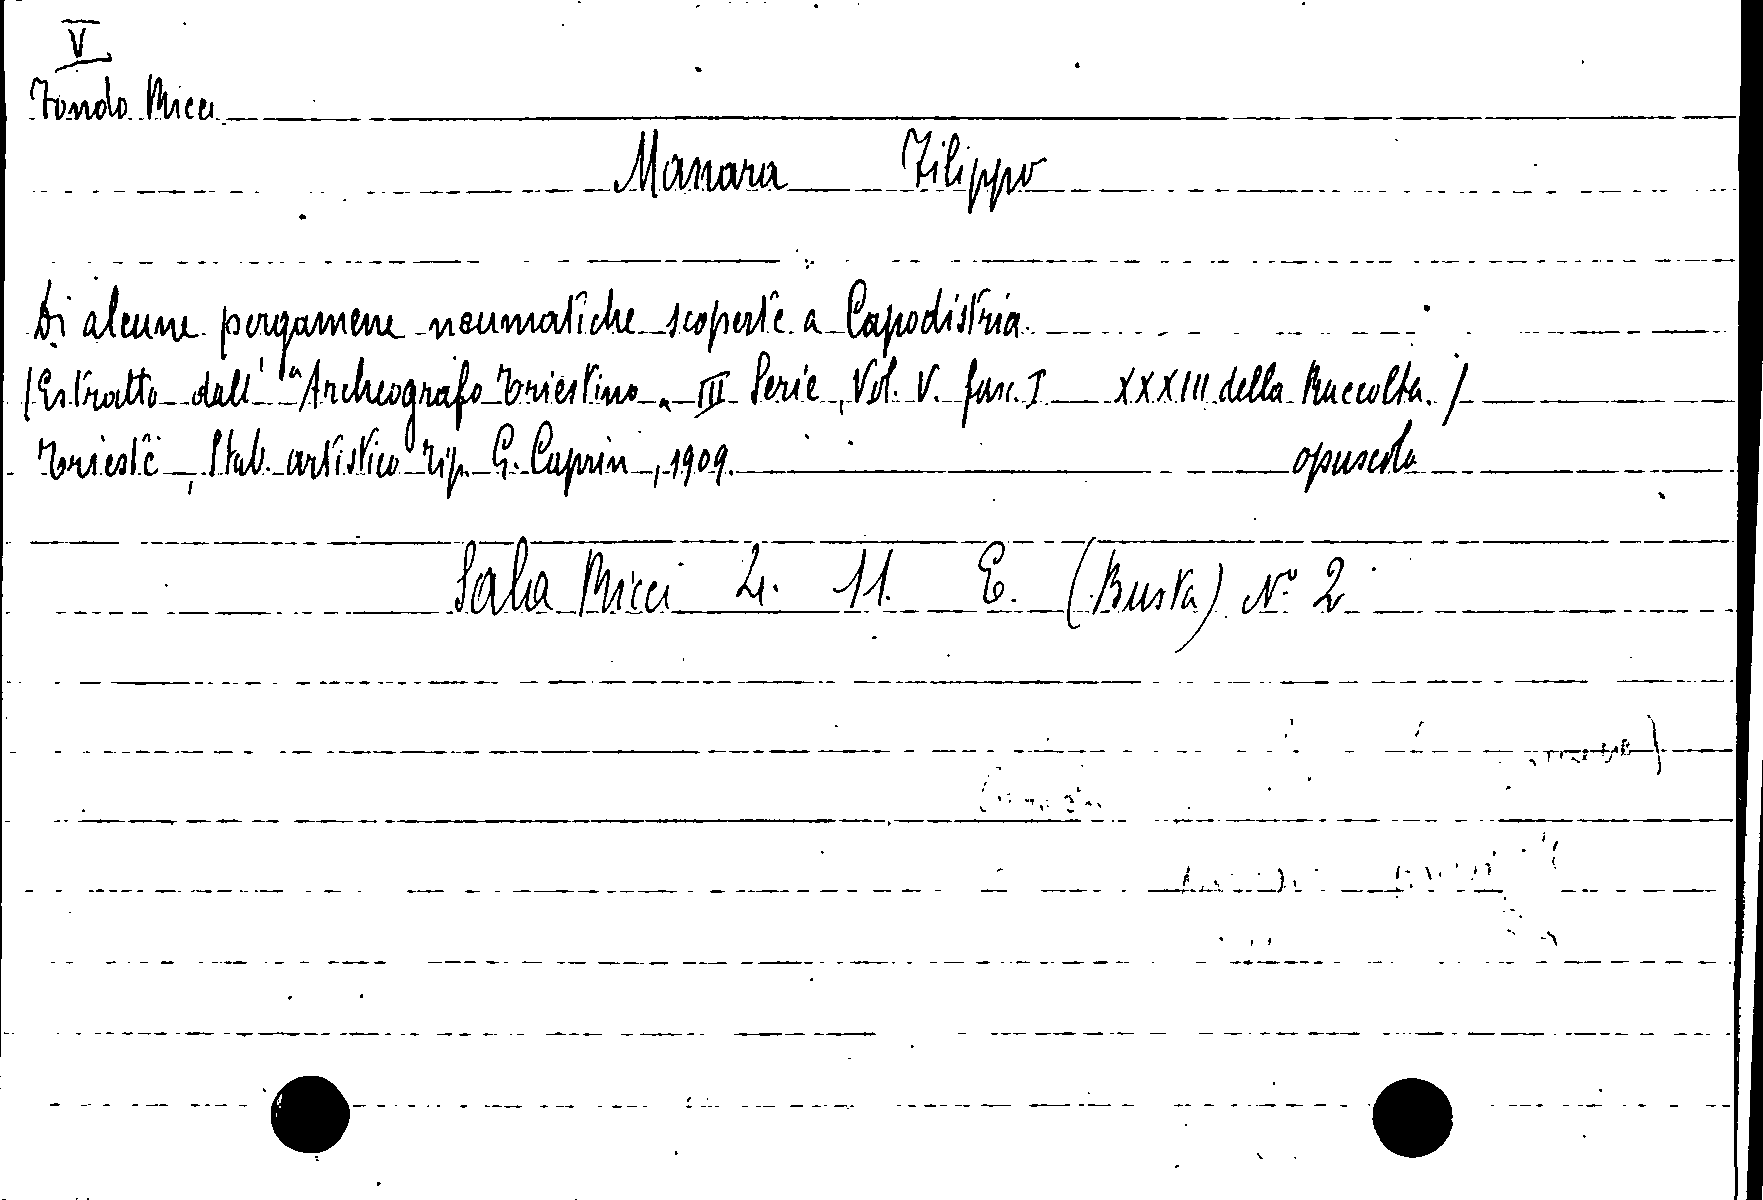 V
Fondo Ricci
Manara Filippo
Di alcune pergamene neumatiche scoperte a Capodistria
(Estratto dall' "Archeografo Triestino" III Serie, Vol. V. fasc. I XXXIII della Raccolta.)
Trieste, Stab. artistico Tip. G. Caprin, 1909. opuscolo
Sala Ricci 4. 11. E. (Busta) N.° 2